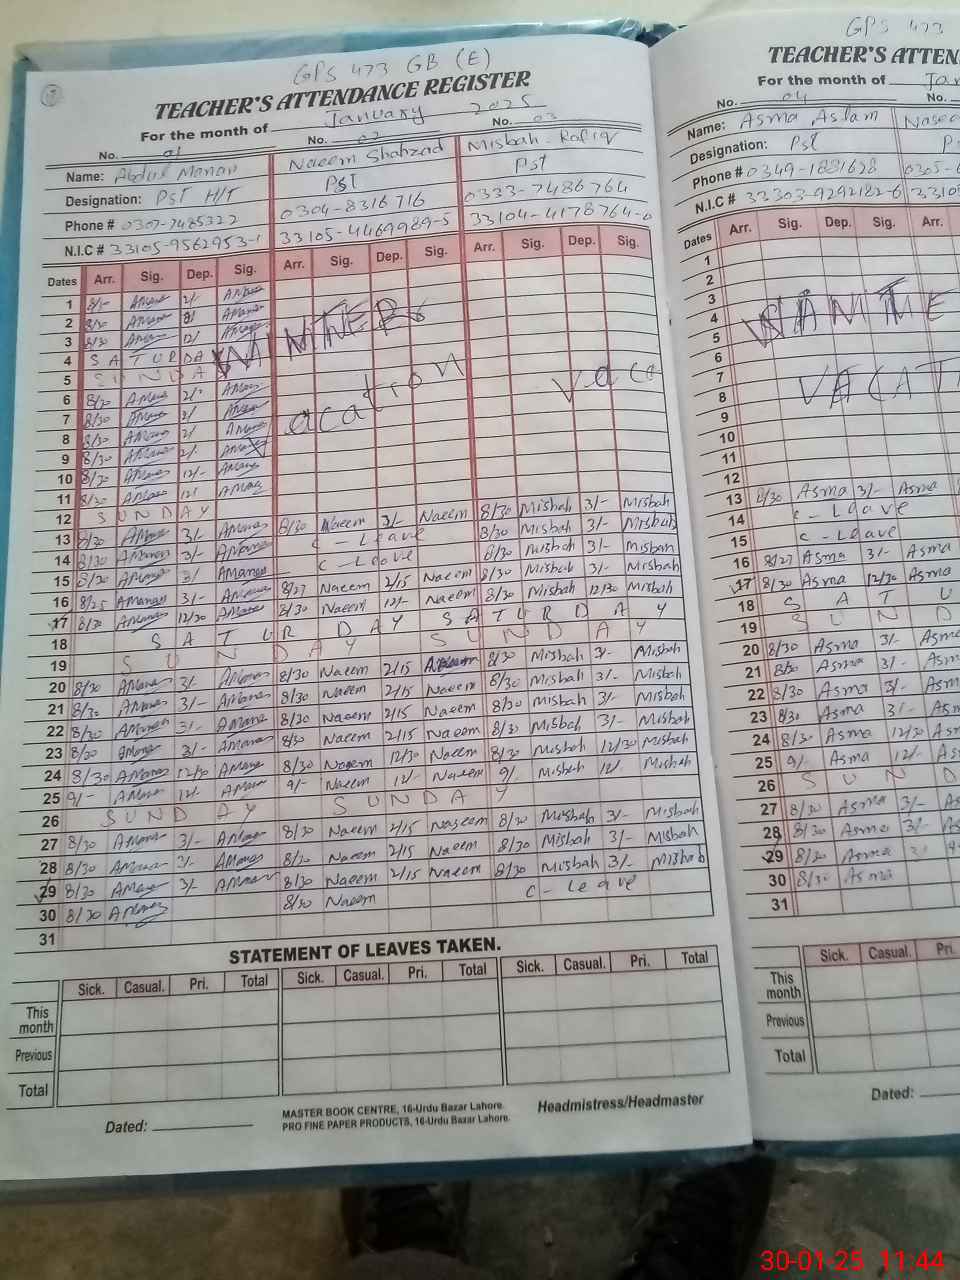 GPS 473 GB (E)
TEACHER'S ATTENDANCE REGISTER
For the month of January 2025
No. 01 No. 02 No. 03
Name: Abdul Manan Naeem Shahzad Misbah Rafiq
Designation: Pst H/T Pst Pst
Phone # 0307-7485322 0304-8316716 0333-7486764
N.I.C # 33105-9562953-1 33105-4469989-5 33104-4178764-0
Dates Arr. Sig. Dep. Sig. Arr. Sig. Dep. Sig. Arr. Sig. Dep. Sig.
1 8/- AManan 2/-
2 8/30 AManan
3 8/30 AManan 12/
4 SATURDA
5 SUNDA
WINTER
6 8/30 AManan 2/-
7 8/30 AManan 2/
8 8/30 AManan 2/
acation Vaca
9 8/30 AManan 2/-
10 8/30 AManan 12/-
11 8/30 AManan 12/
12 SUNDAY
13 8/30 AManan 3/- AManan 8/30 Naeem 3/- Naeem 8/30 Misbah 3/- Misbah
14 8/30 AManan 3/- AManan C - Leave 8/30 Misbah 3/- Misbah
15 8/30 AManan 3/ AManan C - Leave 8/30 Misbah 3/- Misbah
16 8/25 AManan 3/- AManan 8/27 Naeem 2/15 Naeem 8/30 Misbah 3/- Misbah
17 8/30 AManan 12/30 AManan 8/30 Naeem 12/- Naeem 8/30 Misbah 12/30 Misbah
18 SATURDAY SATURDAY
19 SUNDAY SUNDAY
20 8/30 AManan 3/- AManan 8/30 Naeem 2/15 8/30 Misbah 3/- Misbah
21 8/30 AManan 3/- AManan 8/30 Naeem 2/15 Naeem 8/30 Misbah 3/- Misbah
22 8/30 AManan 3/- AManan 8/30 Naeem 2/15 Naeem 8/30 Misbah 3/- Misbah
23 8/30 AManan 3/- AManan 8/30 Naeem 2/15 Naeem 8/30 Misbah 3/- Misbah
24 8/30 AManan 12/30 AManan 8/30 Naeem 12/30 Naeem 8/30 Misbah 12/30 Misbah
25 9/- AManan 12/- AManan 9/- Naeem 12/- Naeem 9/- Misbah 12/- Misbah
26 SUNDAY SUNDAY
27 8/30 AManan 3/- AManan 8/30 Naeem 2/15 Naseem 8/30 Misbah 3/- Misbah
28 8/30 AManan 3/- AManan 8/30 Naeem 2/15 Naeem 8/30 Misbah 3/- Misbah
29 8/30 AManan 3/- AManan 8/30 Naeem 2/15 Naeem 8/30 Misbah 3/- Misbah
30 8/30 AManan 8/30 Naeem C - Leave
31
STATEMENT OF LEAVES TAKEN.
Sick. Casual. Pri. Total Sick. Casual. Pri. Total Sick. Casual. Pri. Total
This month
Previous
Total
Dated:
MASTER BOOK CENTRE, 16-Urdu Bazar Lahore.
PRO FINE PAPER PRODUCTS, 16-Urdu Bazar Lahore.
Headmistress/Headmaster
GPS 473
TEACHER'S ATTEN
For the month of Jan
No. 04 No.
Name: Asma Aslam Nasee
Designation: Pst P
Phone # 0349-1881628 0305-6
N.I.C # 33303-9292182-6 33105
Dates Arr. Sig. Dep. Sig. Arr.
1
2
3
4 WINTE
5
6
7 VACAT
8
9
10
11
12
13 8/30 Asma 3/- Asma
14 C - Leave
15 C - Leave
16 8/27 Asma 3/- Asma
17 8/30 Asma 12/30 Asma
18 SATU
19 SUND
20 8/30 Asma 3/- Asma
21 8/30 Asma 3/- Asm
22 8/30 Asma 3/- Asm
23 8/30 Asma 3/- Asm
24 8/30 Asma 12/30 Asm
25 9/- Asma 12/- As
26 SUND
27 8/30 Asma 3/- Asm
28 8/30 Asma 3/- As
29 8/30 Asma
30 8/30 Asma
31
Sick. Casual. Pri.
This month
Previous
Total
Dated:
30-01-25 11:44